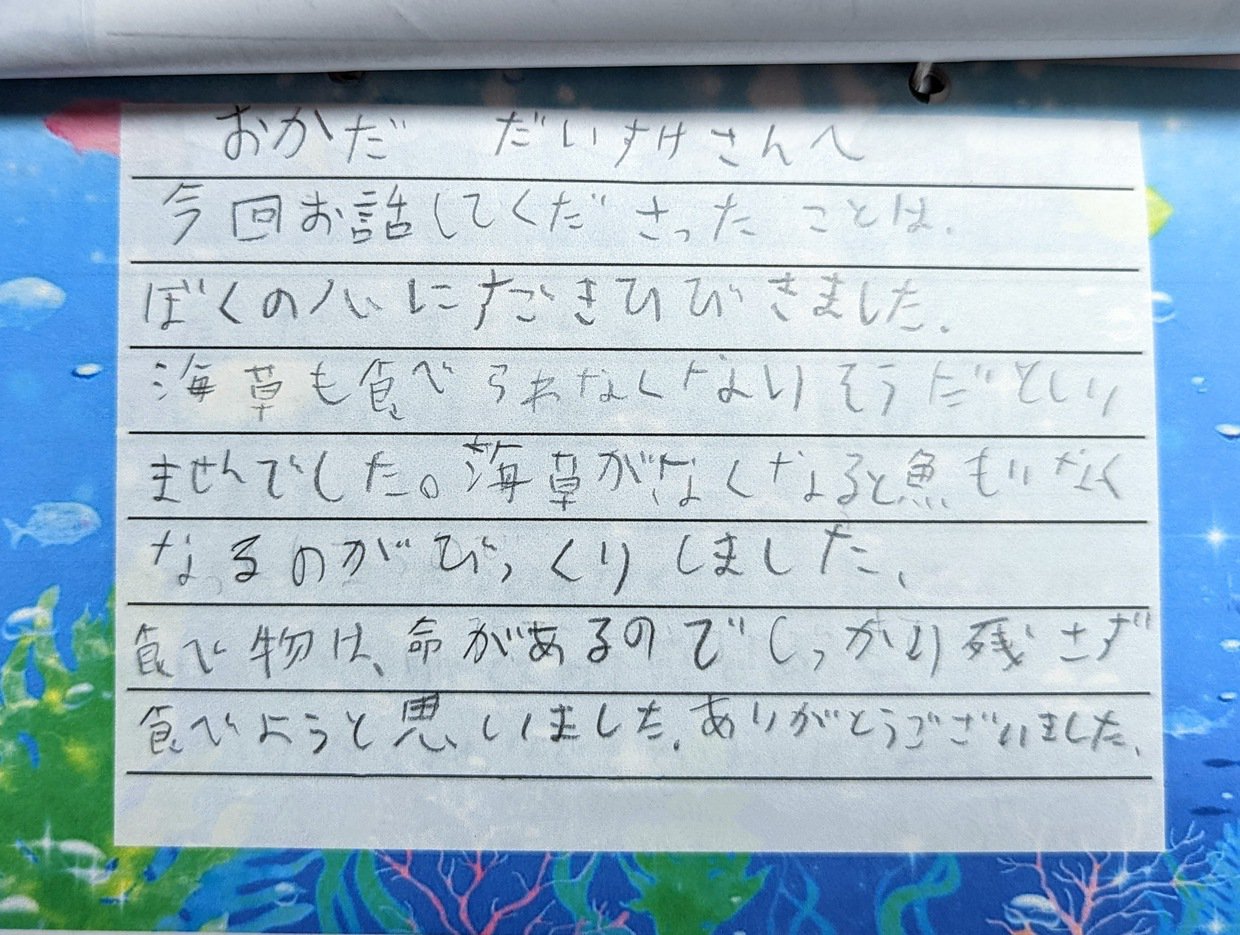 おかだ だいすけさんへ
今回お話してくださったことは、
ぼくの心にすごきひびきました。
海草も食べられなくなりそうだとしり
ませんでした。海草がなくなると魚もいなく
なるのがびっくりしました、
食べ物は、命があるのでしっかり残さず
食べようと思いました。ありがとうございました、